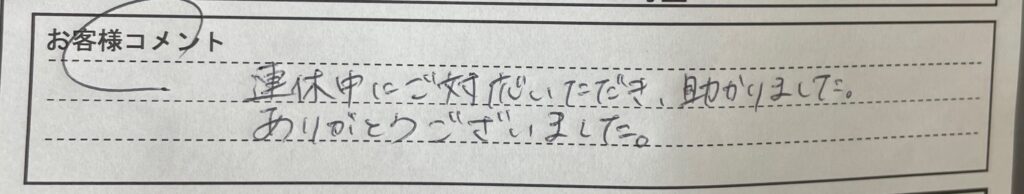 お客様コメント
連休中にご対応いただき、助かりました。
ありがとうございました。